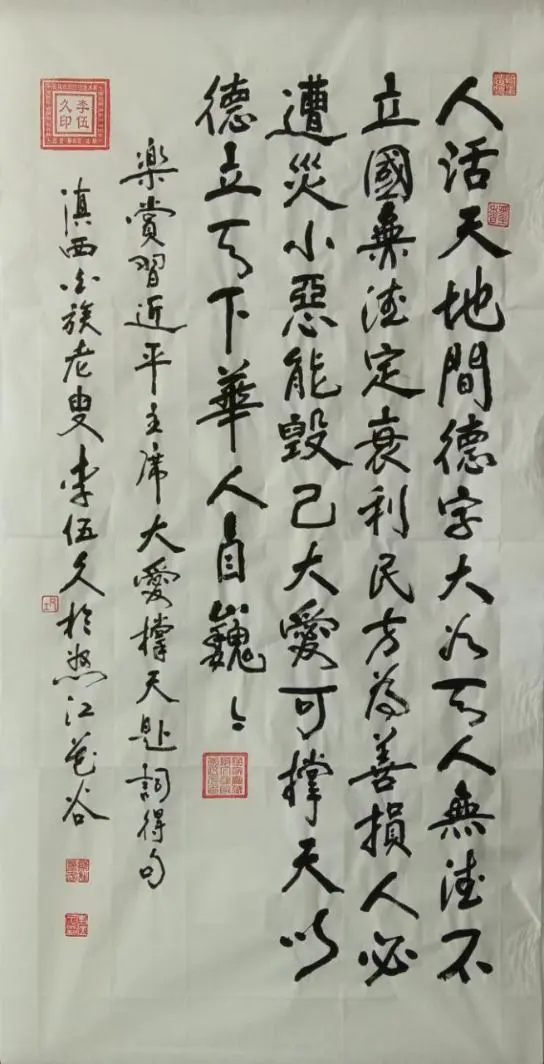 人活天地間德字大如天人無德不
立國無德定衰利民方為善損人必
遭災小惡能毀己大愛可撐天以
德立天下華人自巍〻
楽賞習近平主席大愛撐天題詞得句
李伍久印
滇西白族老叟李伍久於怒江花谷